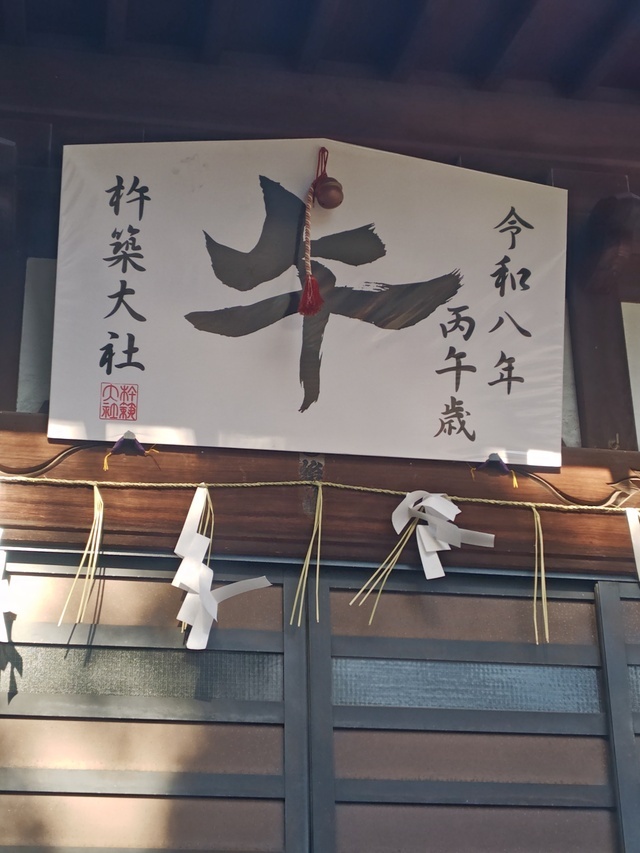 令和八年
丙午歳
午
杵築大社
杵築
大社